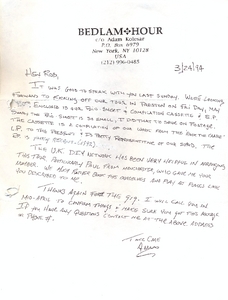 BEDLAM HOUR
c/o Adam Kolesar
P.O. Box 6979
New York, NY 10128
USA
(212) 996-0485
3/24/94
HEY ROB,
IT WAS GOOD TO SPEAK WITH YOU LAST SUNDAY. WE'RE LOOKING
FORWARD TO KICKING OFF OUR TOUR IN PRESTON ON FRI DAY, MAY
ENCLOSED IS OUR INFO SHEET & COMPILATION CASSETTE & E.P.
THE SHEET IS SO SMALL, I DID THAT TO SAVE ON POSTAGE.
THE CASSETTE IS A COMPILATION OF OUR WORK FROM THE
UP TO THE PRESENT & IS PRETTY REPRESENTATIVE OF OUR SOUND. THE
THE U.K. DIY NETWORK HAS BEEN VERY HELPFUL IN ARRANGING
THIS TOUR, PARTICULARLY PAUL FROM WORCESTER, WHO GAVE ME YOUR
NUMBER. WE ALSO THE AND PLAY AT PLACES LIKE
YOU DESCRIBED TO ME.
THANKS AGAIN FOR THE GIG. I WILL CALL YOU IN
MID-APRIL TO CONFIRM THINGS & MAKE SURE YOU GOT THIS PACKAGE
IF YOU HAVE ANY QUESTIONS CONTACT ME AT THE ABOVE ADDRESS
TAKE CARE
ADAM